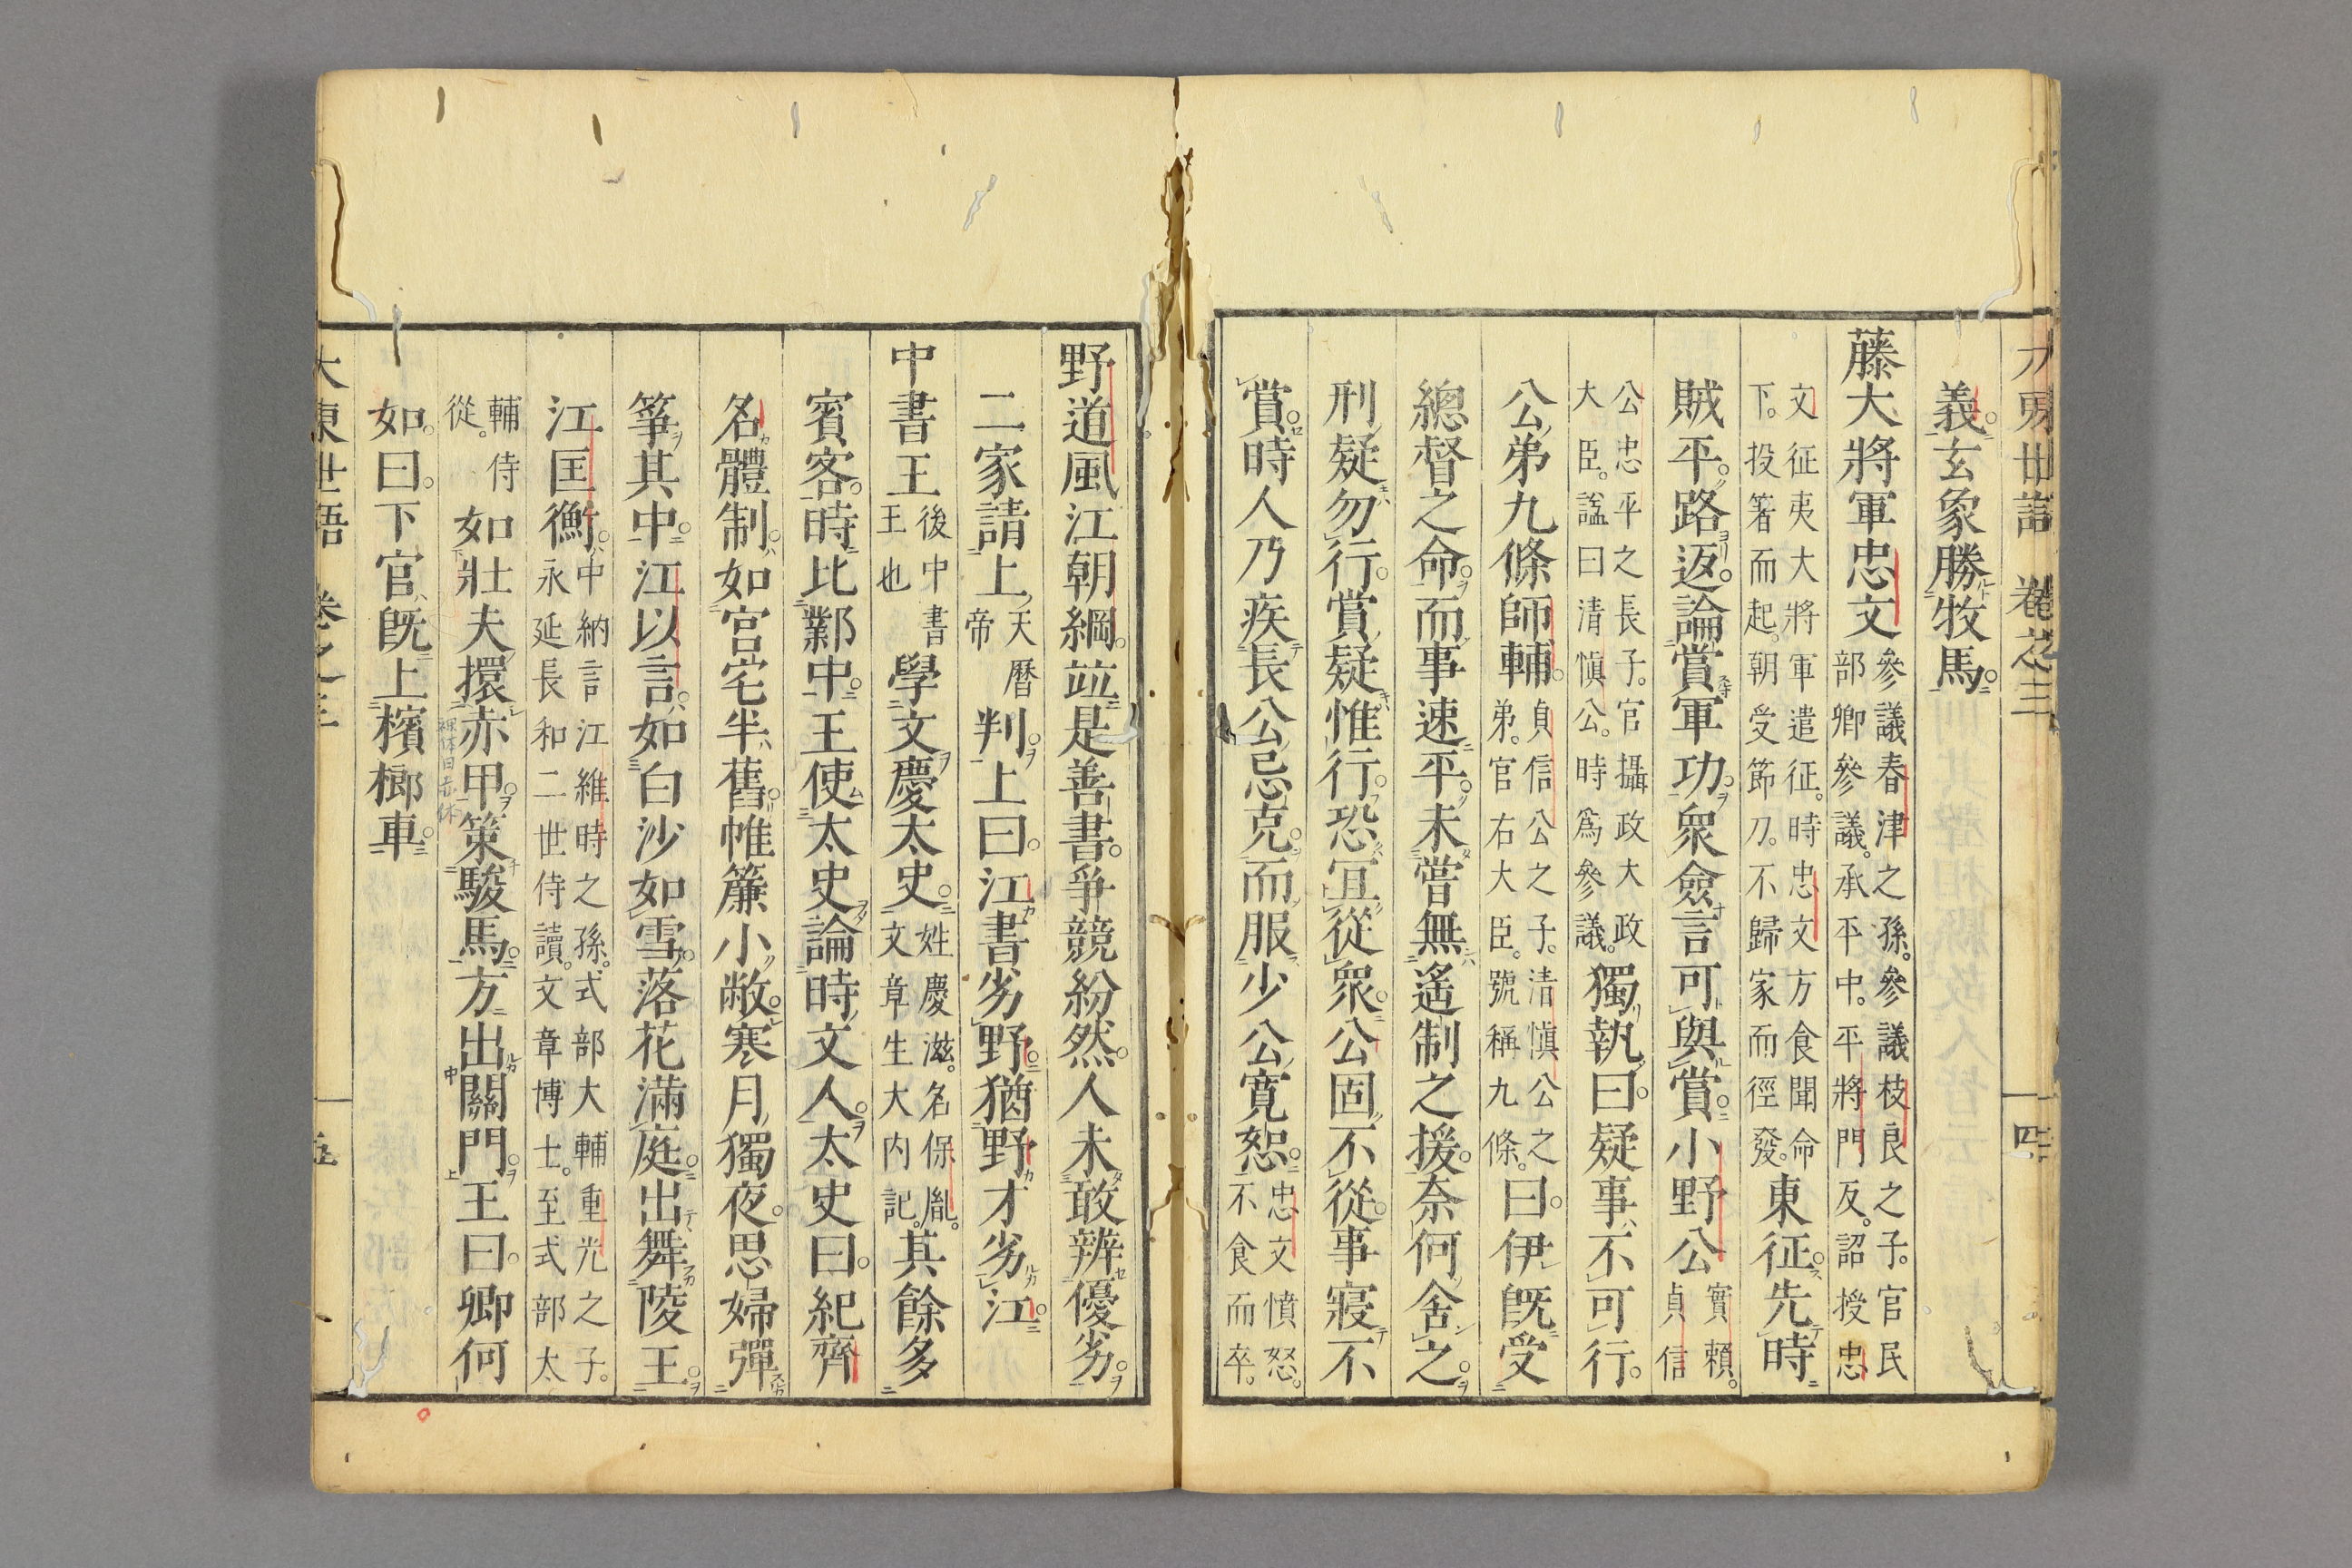 大東世語 卷之三 四
義玄象勝牧馬
藤大將軍忠文參議春津之孫。參議枝良之子。官民部卿參議。承平中。平將門反。詔授忠
文征夷大將軍遣征。時忠文方食聞命下。投箸而起。朝受節刀。不歸家而徑發。東征。先時
賊平。路返。論賞軍功。衆僉言可與賞。小野公實賴。貞信
公忠平之長子。官攝政大政大臣。謚曰清愼公。時爲參議。獨執曰。疑事不可行。
公弟九條師輔。貞信公之子。清愼公之弟。官右大臣。號稱九條。曰。伊旣受
總督之命。而事速平。未嘗無遙制之援。奈何舍之。
刑疑勿行。賞疑惟行。恐冝從衆。公固不從。事寢不
賞。時人乃疾長公忌克。而服少公寬恕。忠文憤怒。不食而卒。
野道風江朝綱。竝是善書。爭競紛然。人未敢辨優劣。
二家請上天曆帝判。上曰。江書劣野。猶野才劣江。
中書王後中書王也學文慶太史。姓慶滋。名保胤。文章生大内記。其餘多
賓客。時比鄴中。王使太史論時文人。太史曰。紀齊
名體制。如宮宅半舊。帷簾小敞。寒月獨夜。思婦彈
箏其中。江以言。如白沙如雪。落花滿庭。出舞陵王。
江匡衡。中納言江維時之孫。式部大輔重光之子。永延長和二世侍讀。文章博士。至式部太
輔侍從。如壯夫擐赤甲。策駿馬。方出關門。王曰。卿何
如。曰。下官旣上檳榔車。
大東世語 卷之三 五